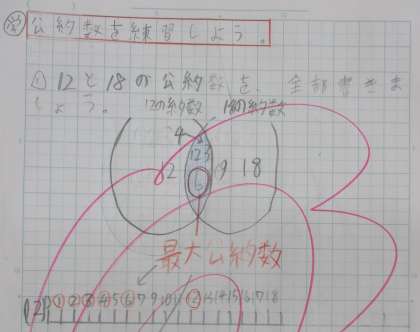 学 公約数を練習しよう。
① 12と18の公約数を、全部書きま
しょう。
12の約数 18の約数
4
1 2 3
12 9 18
6
最大公約数
12 ① ② ③ ④ 5 ⑥ 7 8 9 10 11 ⑫ 13 14 15 16 17 18